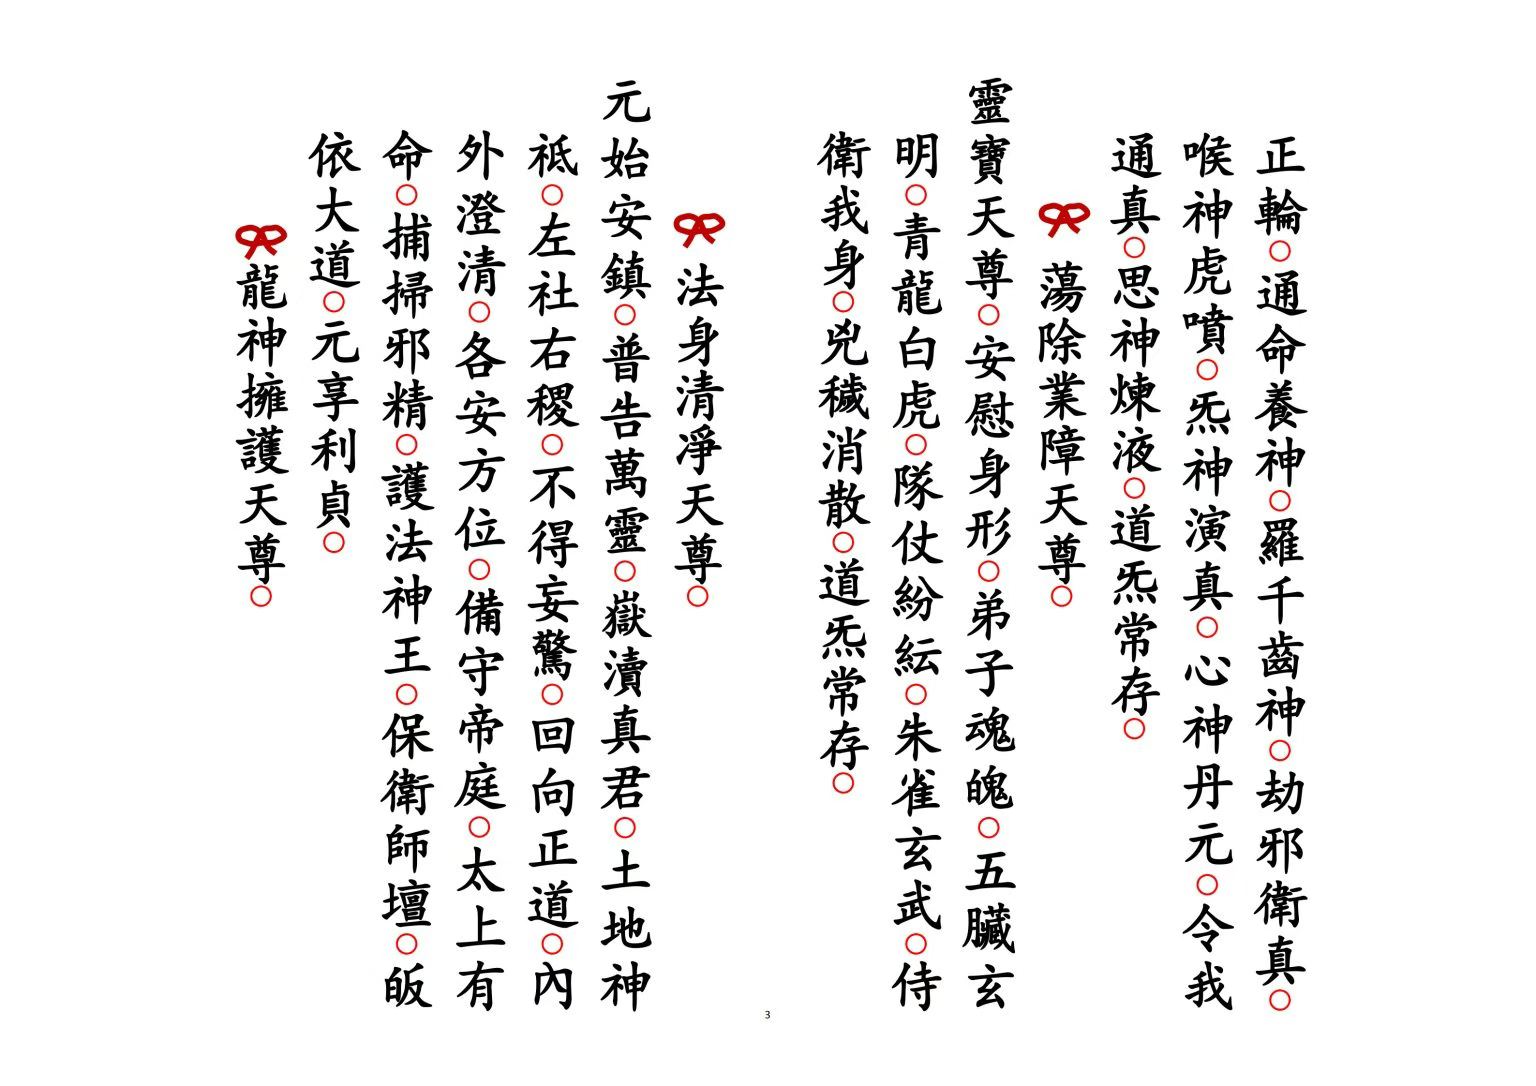 正輪○通命養神○羅千齒神○劫邪衛真○
喉神虎噴○炁神演真○心神丹元○令我
通真○思神煉液○道炁常存○
蕩除業障天尊○
靈寶天尊○安慰身形○弟子魂魄○五臟玄
明○青龍白虎○隊仗紛紜○朱雀玄武○侍
衛我身○兇穢消散○道炁常存○
法身清淨天尊○
元始安鎮○普告萬靈○嶽瀆真君○土地神
祗○左社右稷○不得妄驚○回向正道○內
外澄清○各安方位○備守帝庭○太上有
命○捕掃邪精○護法神王○保衛師壇○皈
依大道○元享利貞○
龍神擁護天尊○
3